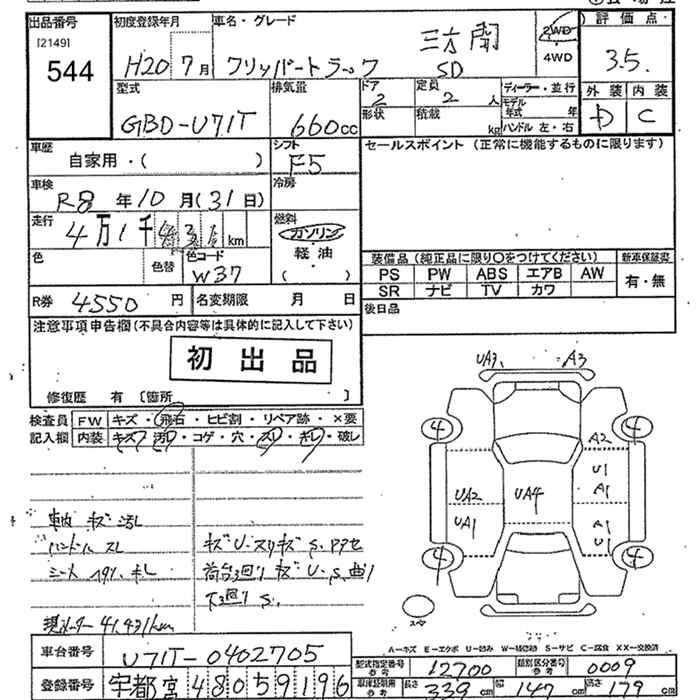 出品番号
[2149]
544
初度登録年月
H20 7月
車名・グレード
クリッパートラック
三方開
SD
2WD
4WD
評価点
3.5
型式
GBD-U71T
排気量
660cc
ドア
2
形状
定員
2人
積載
kg
ディーラー・並行
モデル年式 年
ハンドル 左・右
外装 内装
D C
車歴
自家用・( )
シフト
F5
セールスポイント (正常に機能するものに限ります)
車検
R8年10月(31日)
冷房
走行
4万1千431km
燃料
ガソリン
軽油
( )
色
色替
色コード
W37
装備品 (純正品に限り○をつけてください)
新車保証書
PS PW ABS エアB AW
SR ナビ TV カワ
有・無
R券 4550円
名変期限 月 日
後日品
注意事項申告欄(不具合内容等は具体的に記入して下さい)
初出品
修復歴 有 〔箇所 〕
検査員記入欄
FW キズ・飛石・ヒビ割・リペア跡・×要
内装 キズ・汚れ・コゲ・穴・スレ・キレ・破レ
車内 キズ 汚レ
ハンドル スレ
現メーター 41,431km
キズ U・スリキズ S、アクセ
荷台回り キズ U・S、曲り
下回り S.
A3
4 4
A2
U1
A1
UA2
UA1
UA4
A1
U1
4 4
スペア
A-キズ E-エクボ U-凹み W-補修跡 S-サビ C-腐食 XX-交換済
車台番号
U71T-0402705
登録番号
宇都宮 480 59 196
型式指定番号 参考
12700
類別区分番号 参考
0009
車庫証明用 参考
長さ 339cm 幅 147cm 高さ 179cm